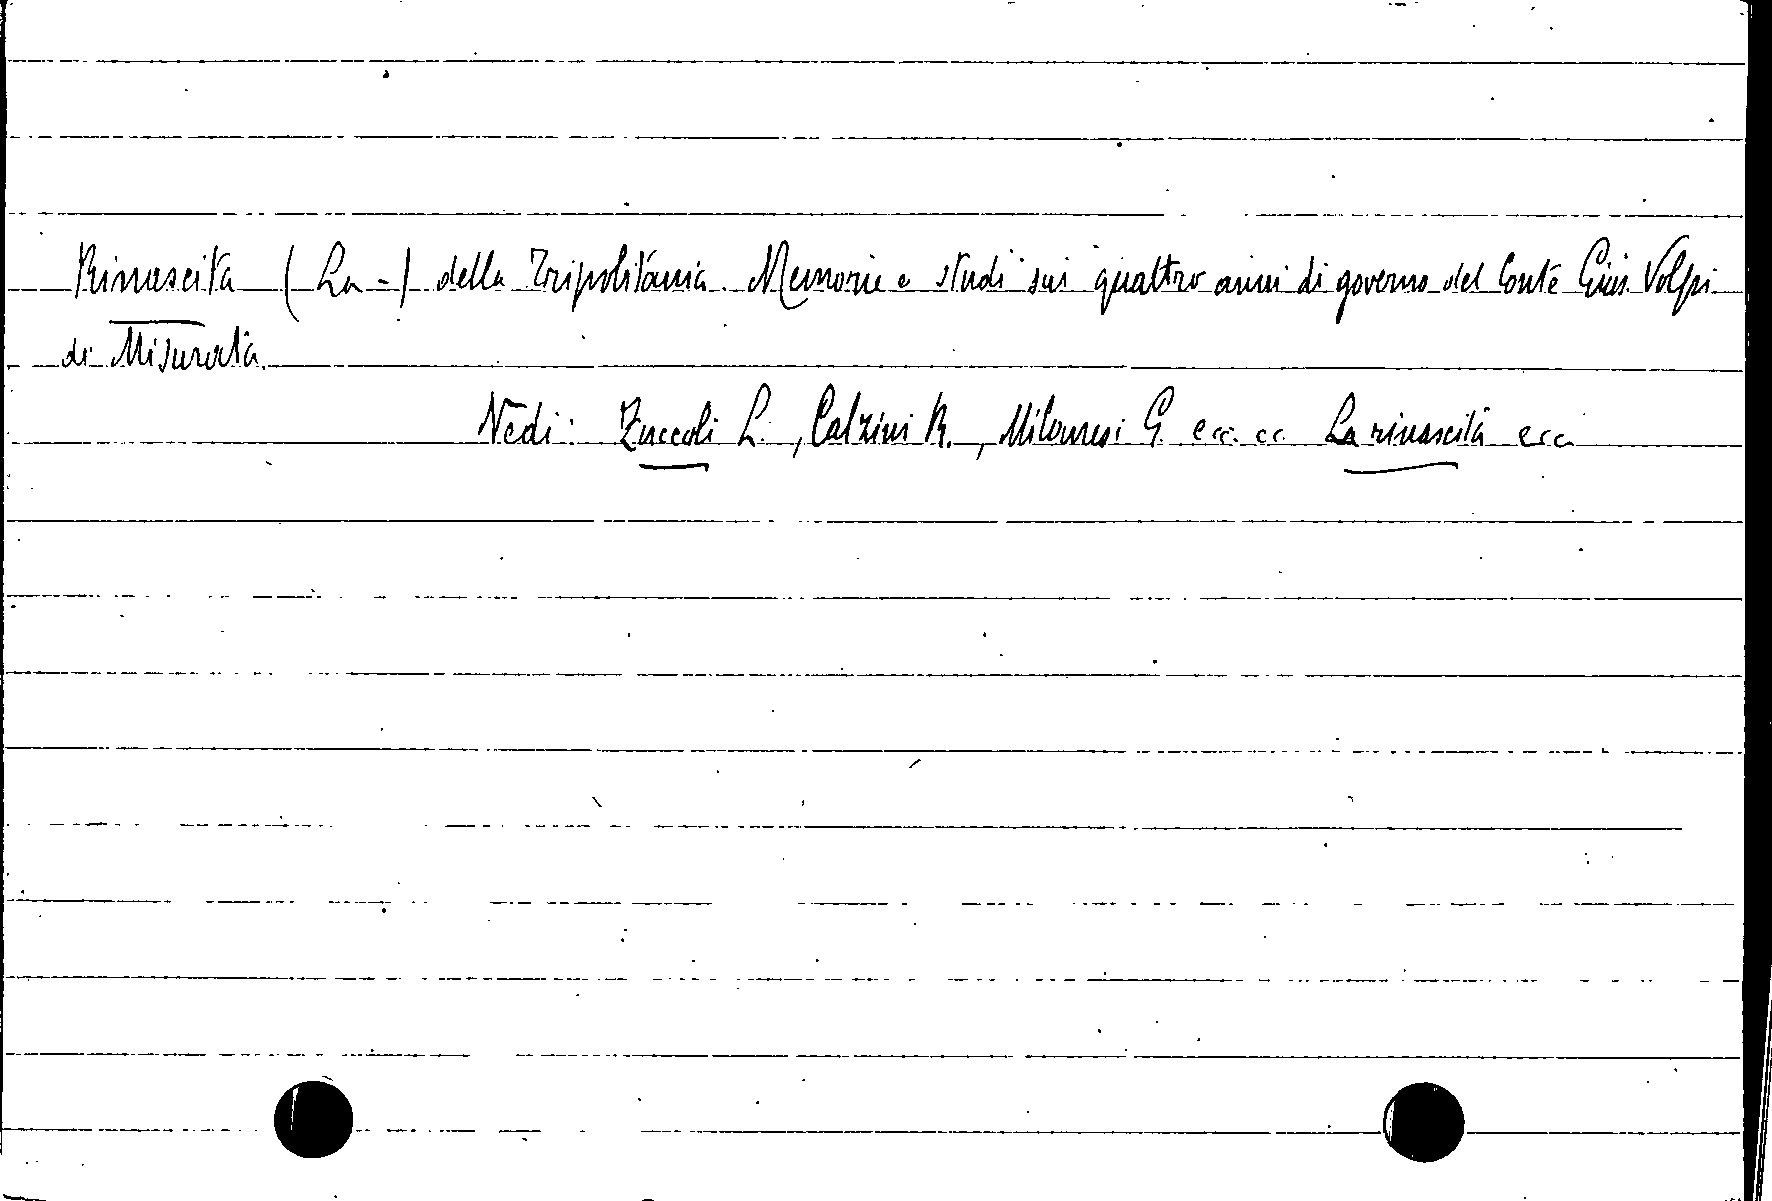 Rinascita (La -) della Tripolitania. Memorie e studi sui quattro anni di governo del Conte Gius. Volpi
di Misurata.
Vedi: Zuccoli L., Calzini R., Milanesi G. ecc. ecc. La rinascita ecc